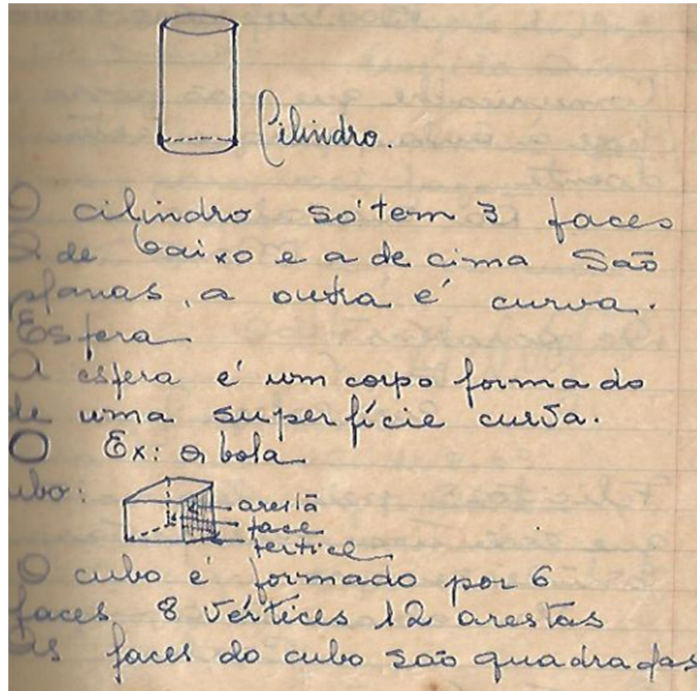 Cilindro.
O cilindro só tem 3 faces
A de baixo e a de cima São
planas, a outra é curva.
Esfera
A esfera é um corpo formado
de uma superfície curva.
O Ex: a bola
ubo:
aresta
face
vértice
O cubo é formado por 6
faces 8 vértices 12 arestas
As faces do cubo são quadradas